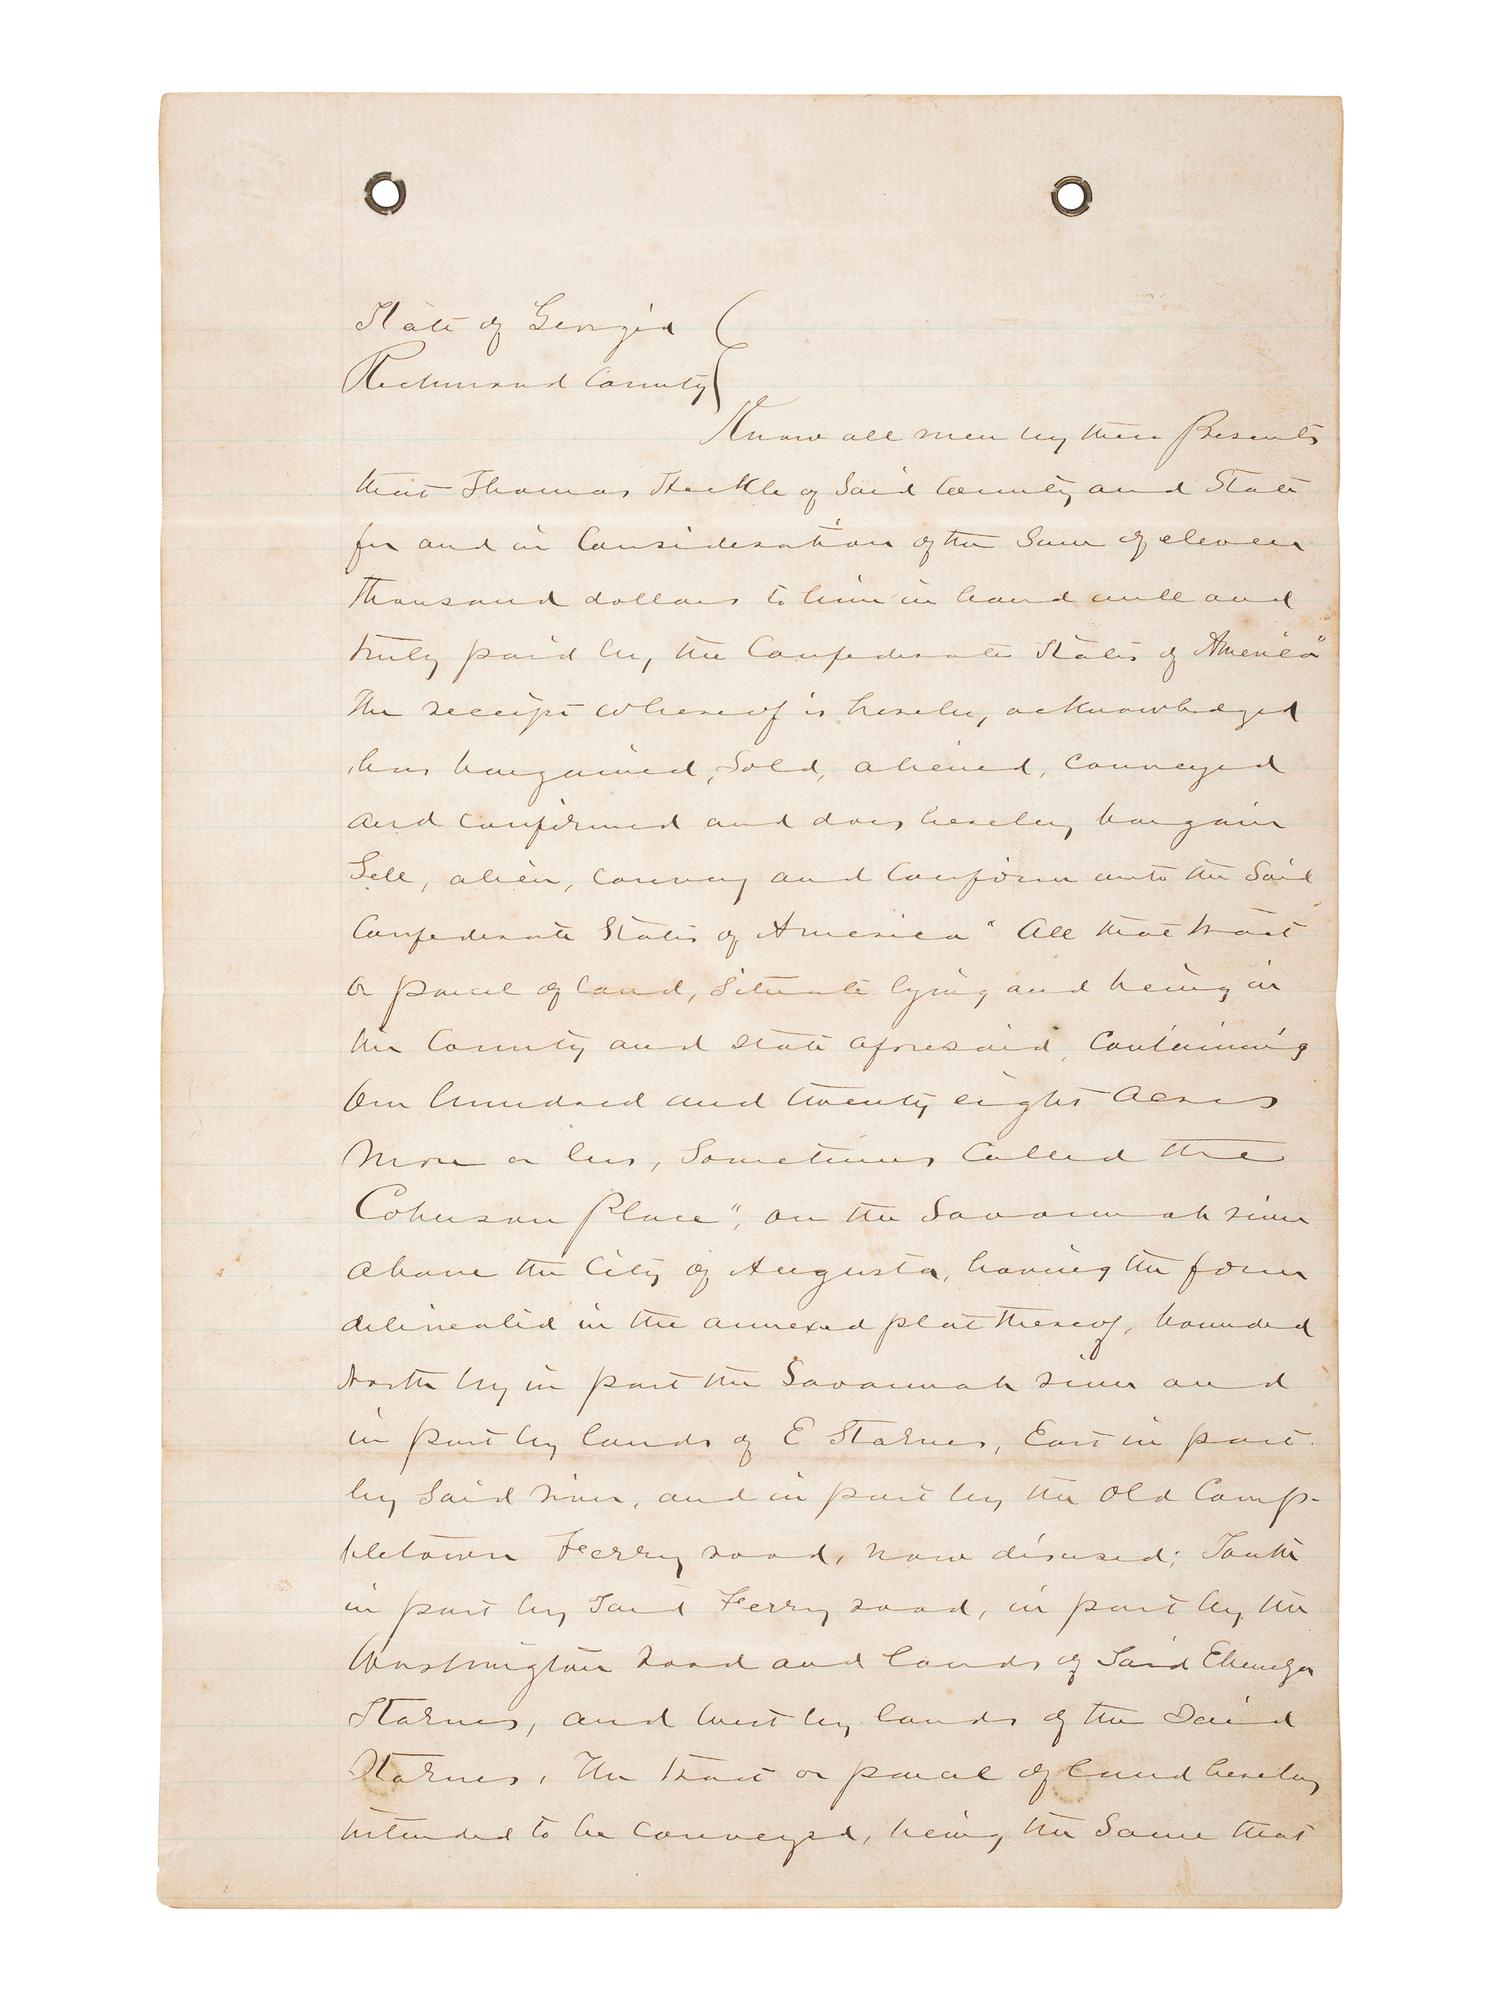 State of Georgia
Richmond County
Know all men by these Presents
that Thomas Heckle of Said County and State
for and in Consideration of the Sum of eleven
thousand dollars to him in hand well and
truly paid by, the Confederate States of America"
the receipt whereof is hereby, acknowledged
has bargained, Sold, aliened, conveyed
and confirmed and does hereby bargain
Sell, alien, convey and Confirm unto the Said
Confederate States of America" All that tract
or parcel of land, Situate lying and being in
the County and State aforesaid, Containing
One hundred and twenty eight Acres
More or less, Sometimes Called the
Place", on the Savannah river
Above the City of Augusta, having the form
delineated in the annexed plat thereof, bounded
North by in part the Savannah river and
in part by lands of E Starnes, East in part
by Said river, and in part by the Old Camp-
beltown Ferry road, now disused; South
in part by Said Ferry road, in part by the
Washington road and lands of Said Ebenezer
Starnes, and West by lands of the Said
Starnes, The tract or parcel of land hereby
intended to be Conveyed, being the Same that